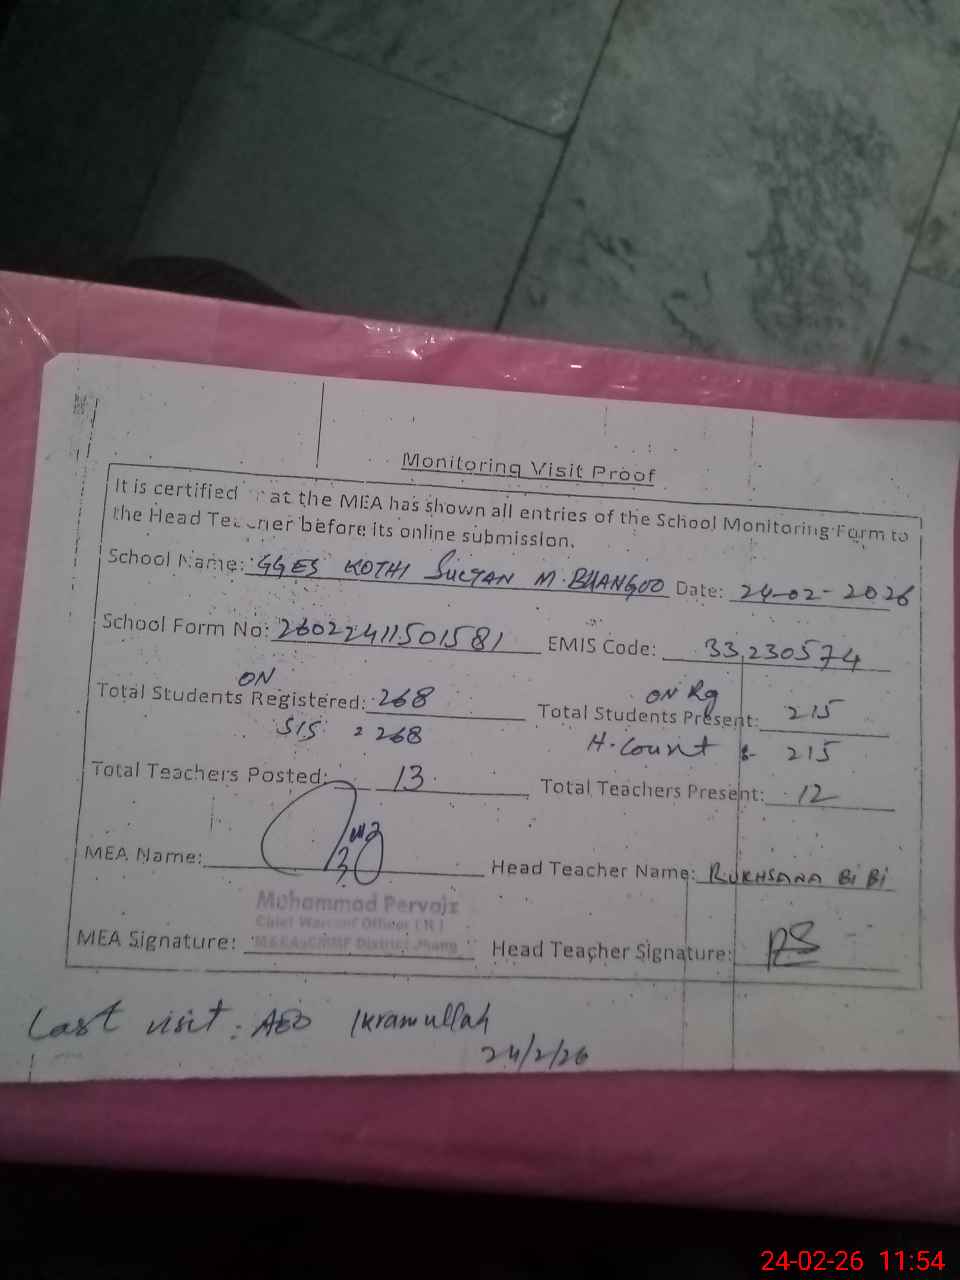 Monitoring Visit Proof
It is certified at the MEA has shown all entries of the School Monitoring Form to
the Head Teacher before its online submission.
School Name: GGES KOTHI SULTAN M. BHANGOO Date: 24-02-2026
School Form No: 26022411501581 EMIS Code: 33230574
ON ON Rg
Total Students Registered: 268 Total Students Present: 215
SIS = 268 H.Count = 215
Total Teachers Posted: 13 Total Teachers Present: 12
MEA Name: Head Teacher Name: RUKHSANA BIBI
Mohammad Pervaiz
Chief Warrant Officer (R)
MEA Signature: District Jhang Head Teacher Signature:
Last visit: AEO Ikramullah
24/2/26
24-02-26 11:54